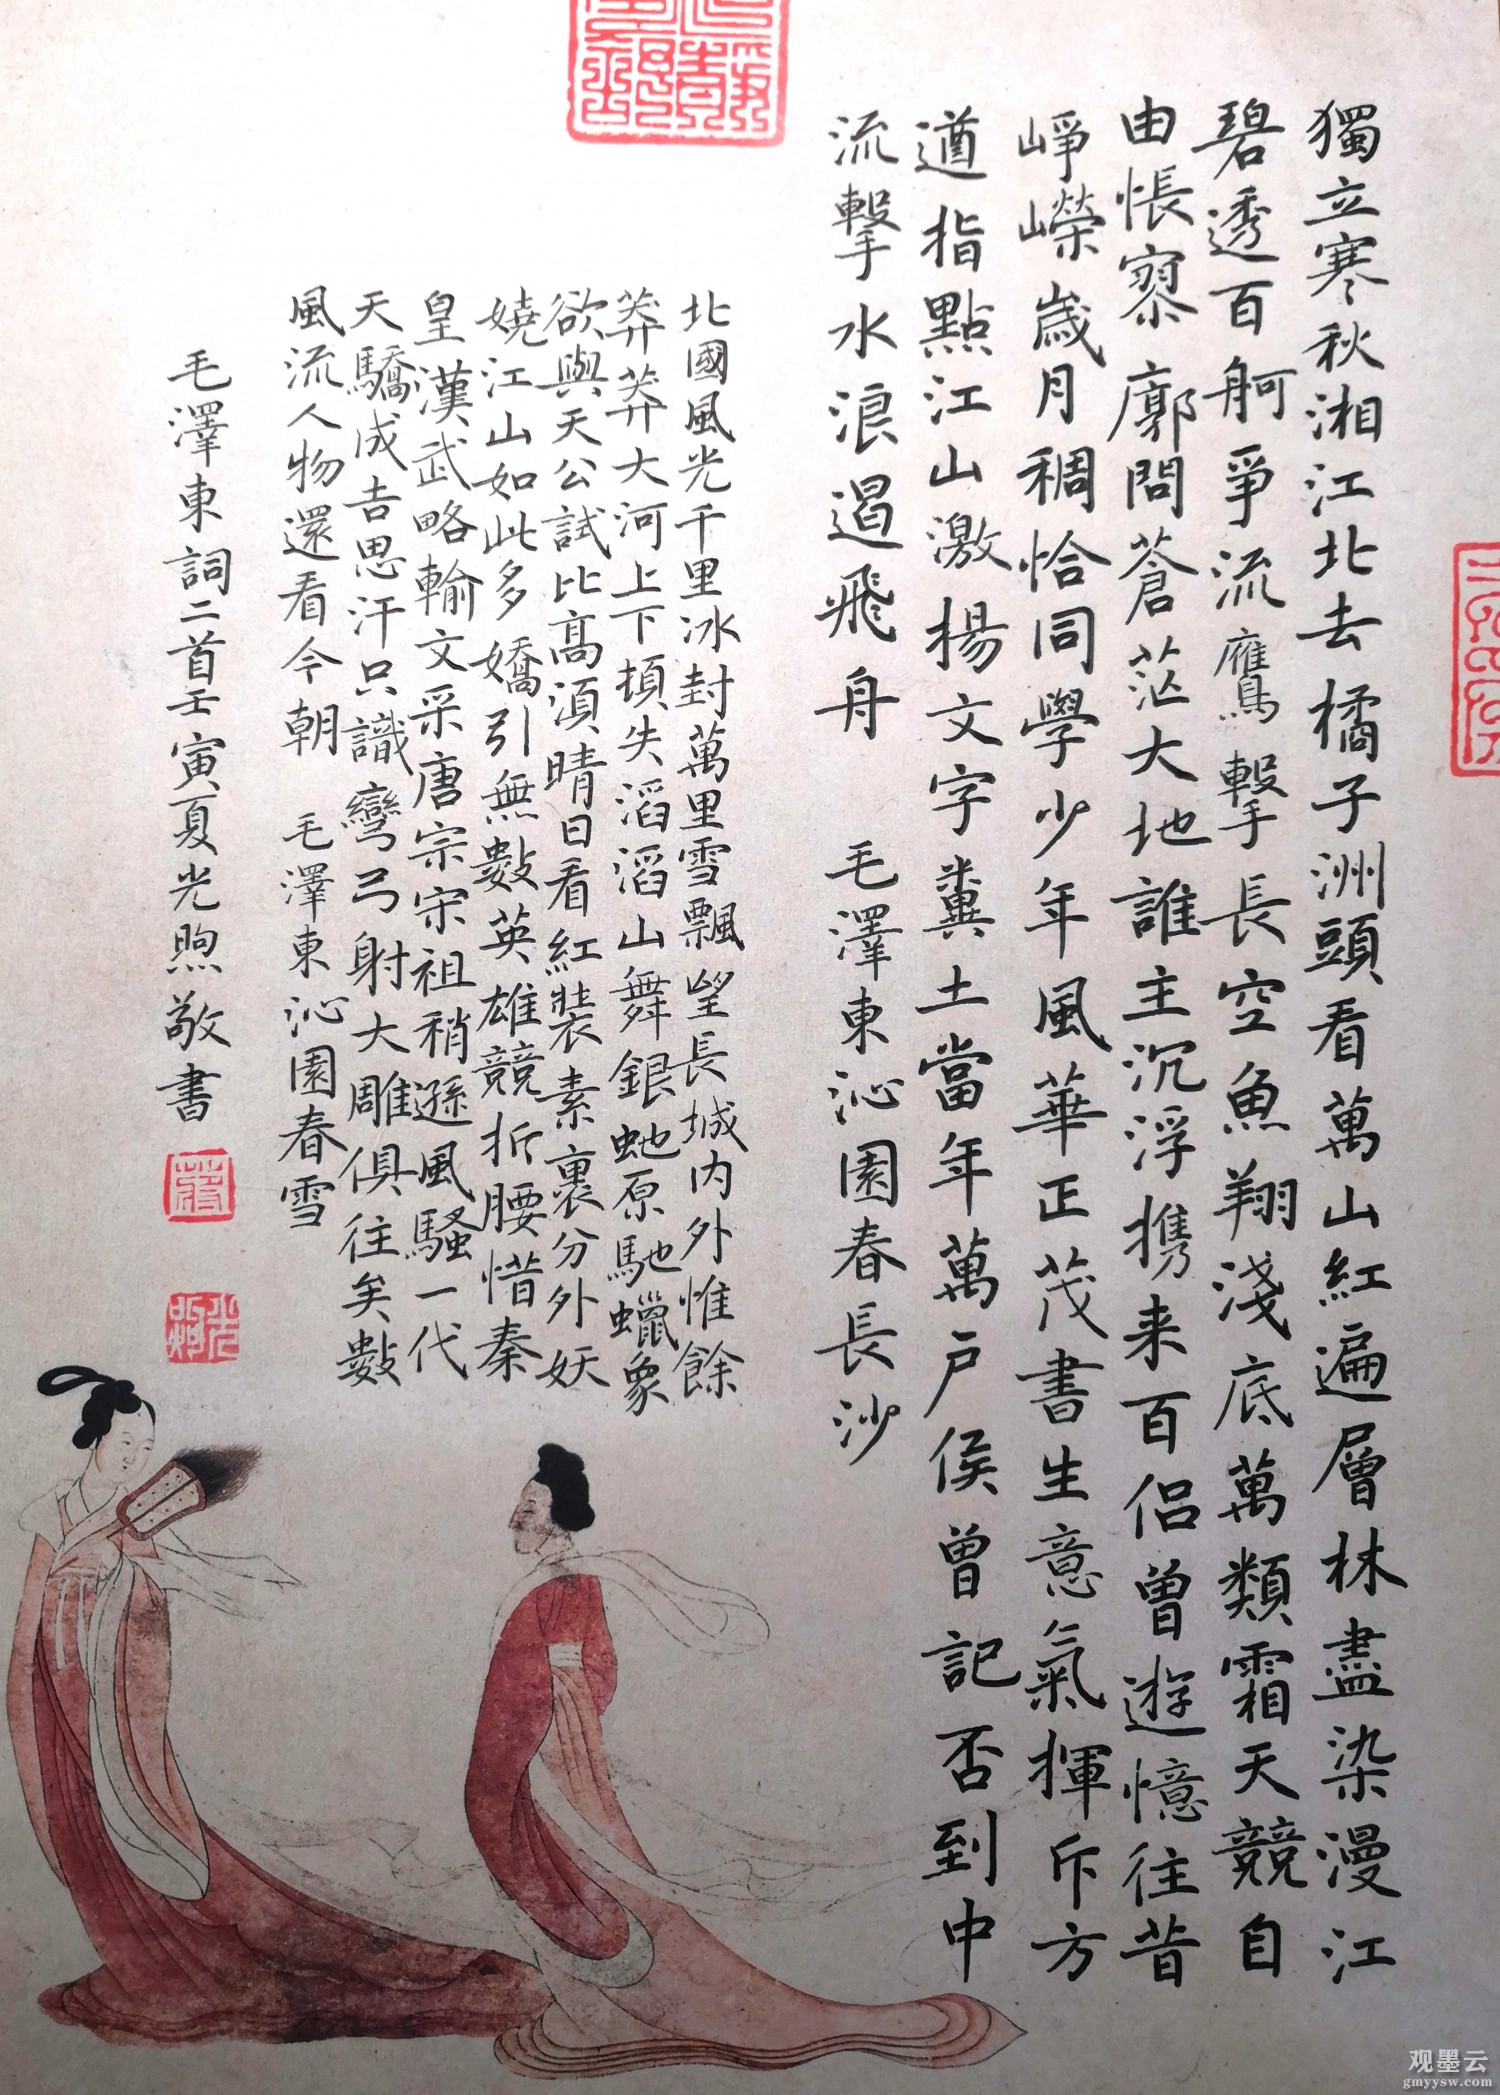 獨立寒秋湘江北去橘子洲頭看萬山紅遍層林盡染漫江
碧透百舸爭流鷹擊長空魚翔淺底萬類霜天競自
由悵寥廓問蒼茫大地誰主沉浮携来百侣曾遊憶往昔
崢嶸歲月稠恰同學少年風華正茂書生意氣揮斥方
遒指點江山激揚文字糞土當年萬户侯曾記否到中
流擊水浪遏飛舟 毛澤東沁園春長沙
北國風光千里冰封萬里雪飄望長城内外惟餘
莽莽大河上下頓失滔滔山舞銀虵原馳蠟象
欲與天公試比高湏晴日看紅裝素裹分外妖
嬈江山如此多嬌引無數英雄競折腰惜秦
皇漢武略輸文采唐宗宋祖稍遜風騷一代
天驕成吉思汗只識彎弓射大雕俱往矣數
風流人物還看今朝 毛澤東沁園春雪
毛澤東詞二首壬寅夏光煦敬書
观墨云
gmyysw.com